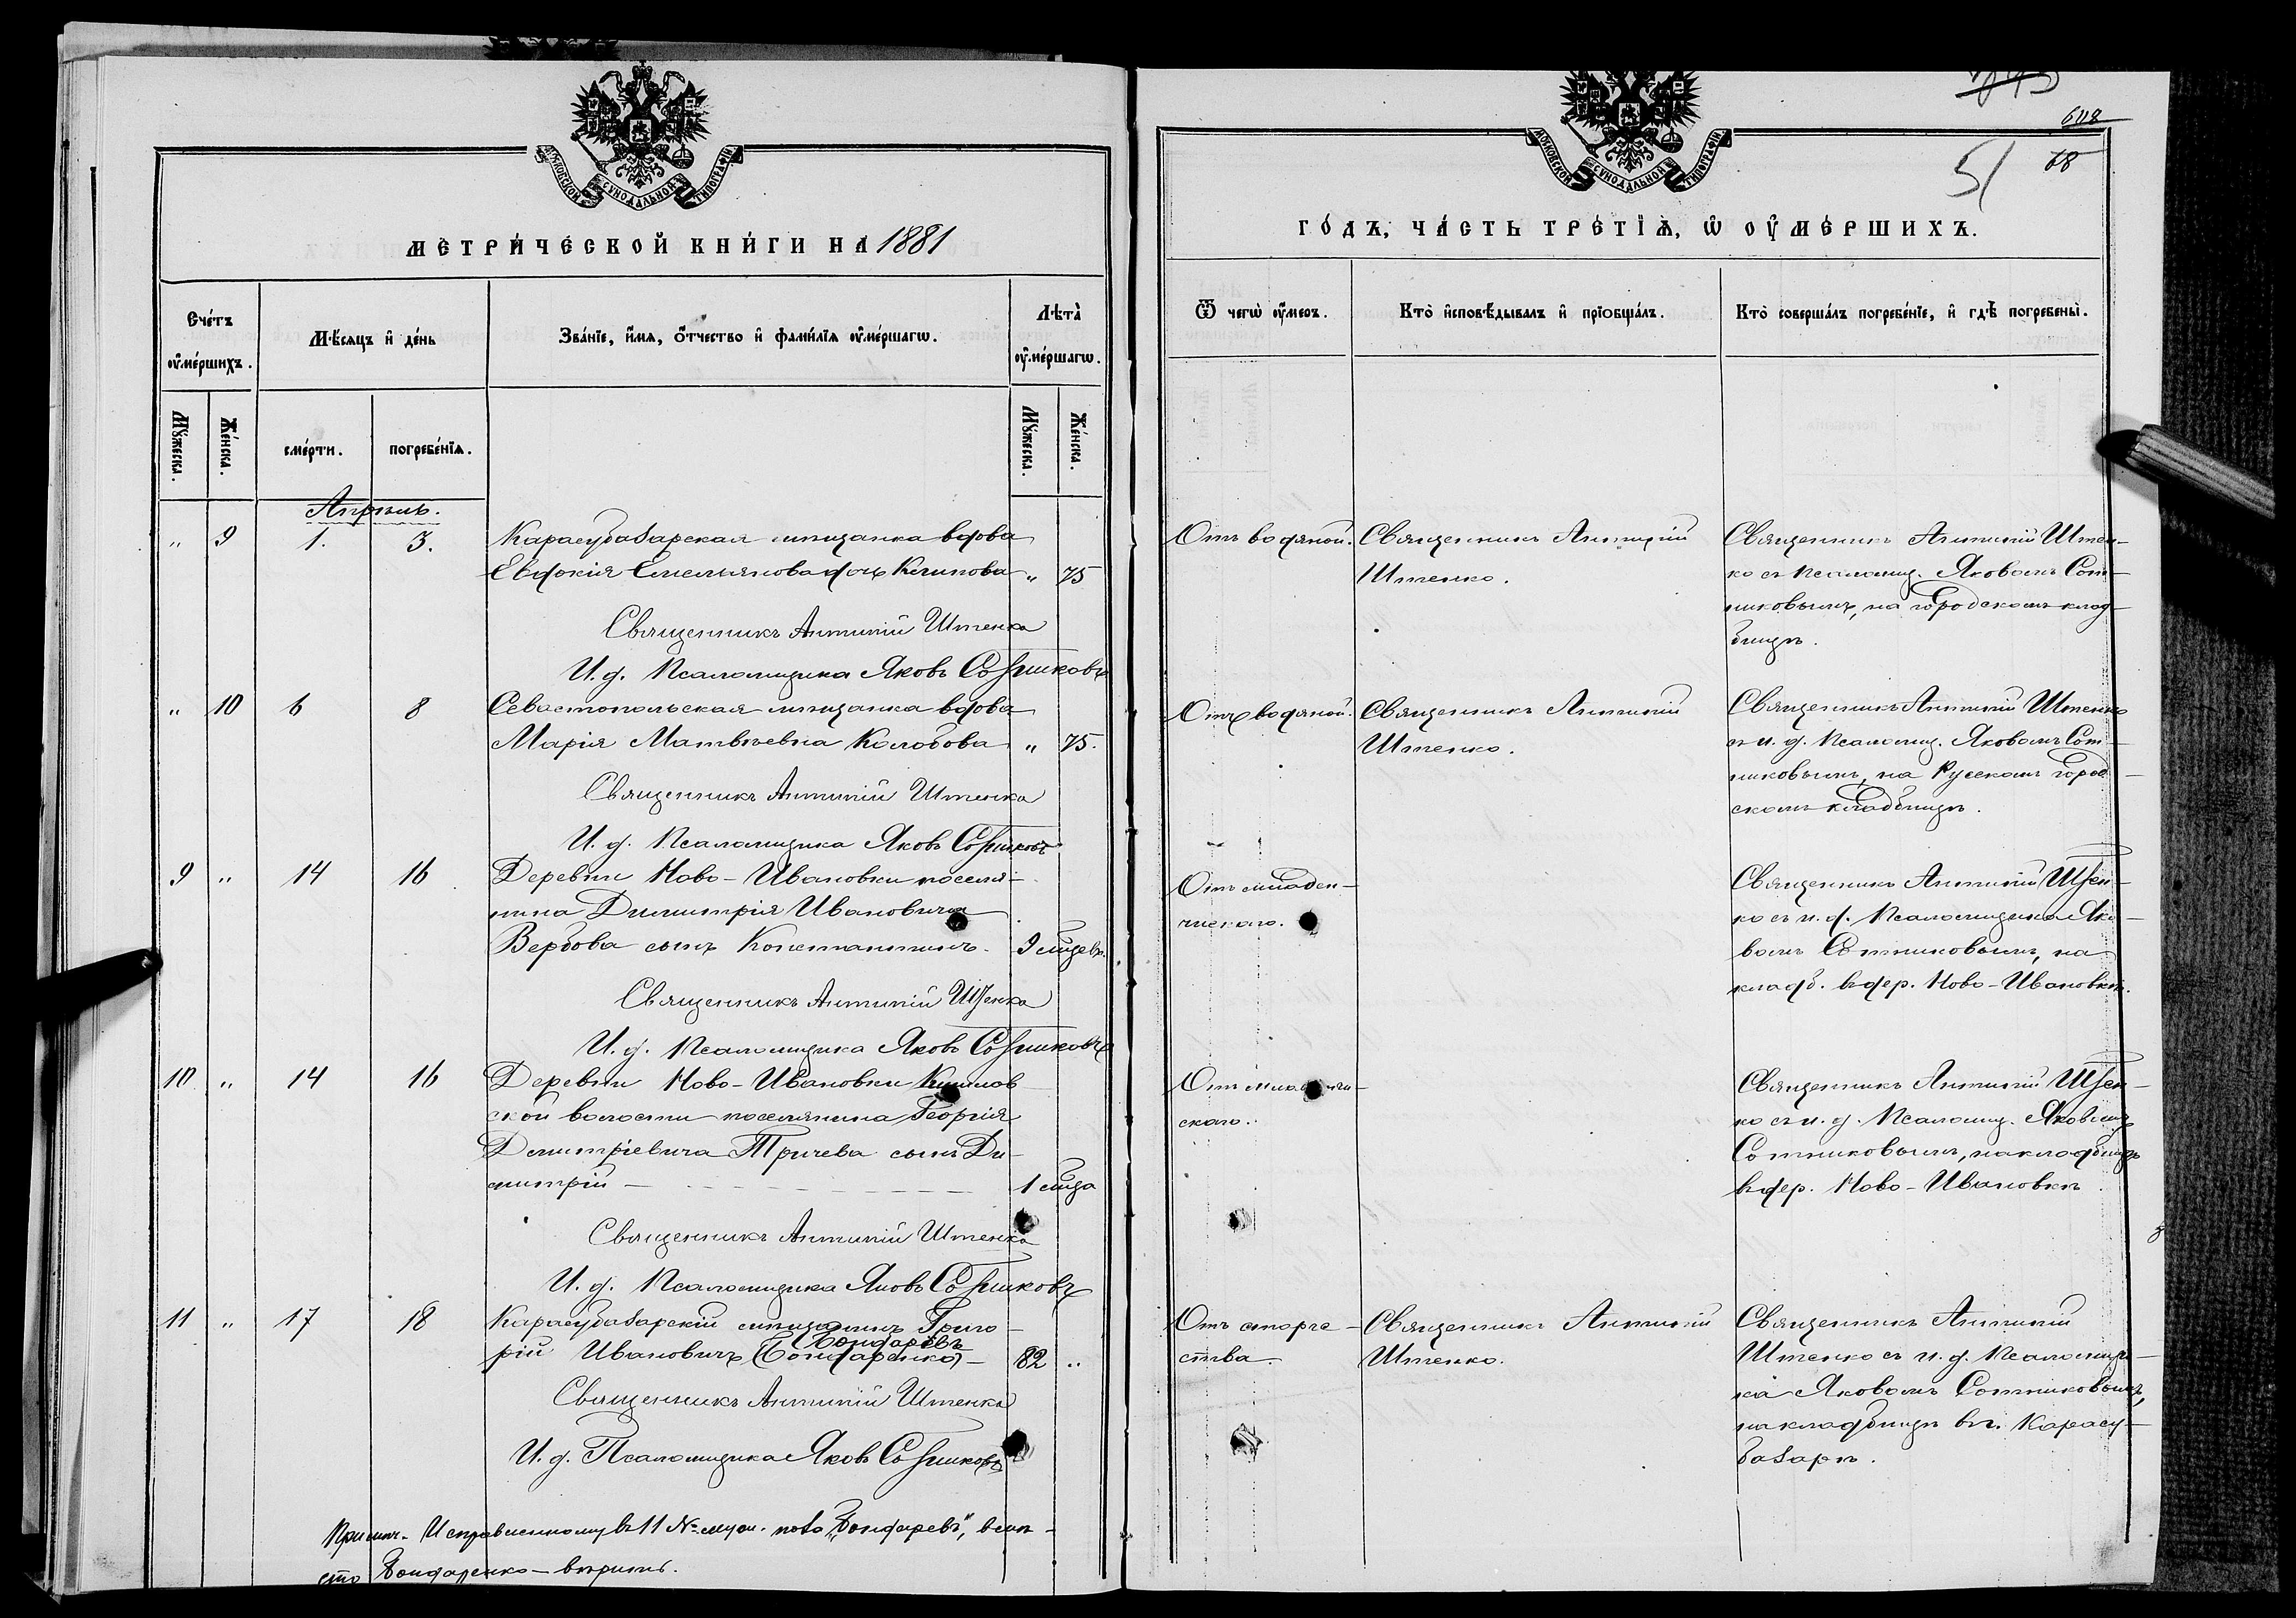 МОСКОВСКОЙ СѴНОДАЛЬНОЙ ТИПОГРАФІИ
МЕТРИ́ЧЕСКОЙ КНИ́ГИ НА 1881
Сче́тъ оу҆ме́ршихъ.
Мѣ́сяцъ и҆ де́нь
Зва́нїе, и҆́мя, ѻ҆́тчество и҆ фами́лїя оу҆ме́ршагѡ.
Лѣта̀ оу҆ме́ршагѡ.
Мꙋ́жеска.
Же́нска.
сме́рти.
погребе́нїя.
Мꙋ́жеска.
Же́нска.
Апрѣль.
„ 9 1. 3. Карасубазарская мѣщанка вдова
Евдокія Емельянова дочь Климова „ 75
Священникъ Антипій Штенко
И. д. Псаломщика Яковъ Сотниковъ
„ 10 6 8 Севастопольская мѣщанка вдова
Марія Матвѣевна Колобова „ 75.
Священникъ Антипій Штенко
И. д. Псаломщика Яковъ Сотниковъ
9 „ 14 16 Деревни Ново-Ивановки поселя-
нина Димитрія Ивановича
Вербова сынъ Константинъ. 9 мѣцевъ.
Священникъ Антипій Штенко
И. д. Псаломщика Яковъ Сотниковъ
10 „ 14 16 Деревни Ново-Ивановки
ской волости поселянина Георгія
Димитріевича Тричева сынъ Ди-
митрій — 1 мѣца
Священникъ Антипій Штенко
И. д. Псаломщика Яковъ Сотниковъ
11 „ 17 18 Карасубазарскій мѣщанинъ Григо-
Бондаревъ
рій Ивановичъ (Бондаренко) — 82 „
Священникъ Антипій Штенко
И. д. Псаломщика Яковъ Сотниковъ
Примѣч. Исправленному въ 11 № муж. пола „Бондаревъ", вмѣ-
сто Бондаренко — вѣрить.
648
51 68
МОСКОВСКОЙ СѴНОДАЛЬНОЙ ТИПОГРАФІИ
ГО́ДЪ, ЧА́СТЬ ТРЕ́ТЇЯ, Ѡ҆ ОУ҆МЕ́РШИХЪ.
Ѿ чегѡ̀ оу҆́меръ.
Кто̀ и҆сповѣ́дывалъ и҆ прїобща́лъ.
Кто̀ соверша́лъ погребе́нїе, и҆ гдѣ̀ погребены̀.
Отъ водяной. Священникъ Антипій Священникъ Антипій Штен-
Штенко. ко съ Псаломщ. Яковомъ Сот-
никовымъ, на городскомъ клад-
бищѣ.
Отъ водяной. Священникъ Антипій Священникъ Антипій Штенко
Штенко. съ и. д. Псаломщ. Яковомъ Сот-
никовымъ, на Русскомъ город-
скомъ кладбищѣ.
Отъ младен- Священникъ Антипій Штен-
ческаго. ко съ и. д. Псаломщика Яко-
вомъ Сотниковымъ, на
кладб. въ дер. Ново-Ивановкѣ.
Отъ младенче- Священникъ Антипій Штен-
скаго. ко съ и. д. Псаломщ. Яковомъ
Сотниковымъ, на кладбищѣ
въ дер. Ново-Ивановкѣ.
Отъ старче- Священникъ Антипій Священникъ Антипій
ства. Штенко. Штенко съ и. д. Псаломщи-
ка Яковомъ Сотниковымъ,
на кладбищѣ въ г. Карасу-
базарѣ.